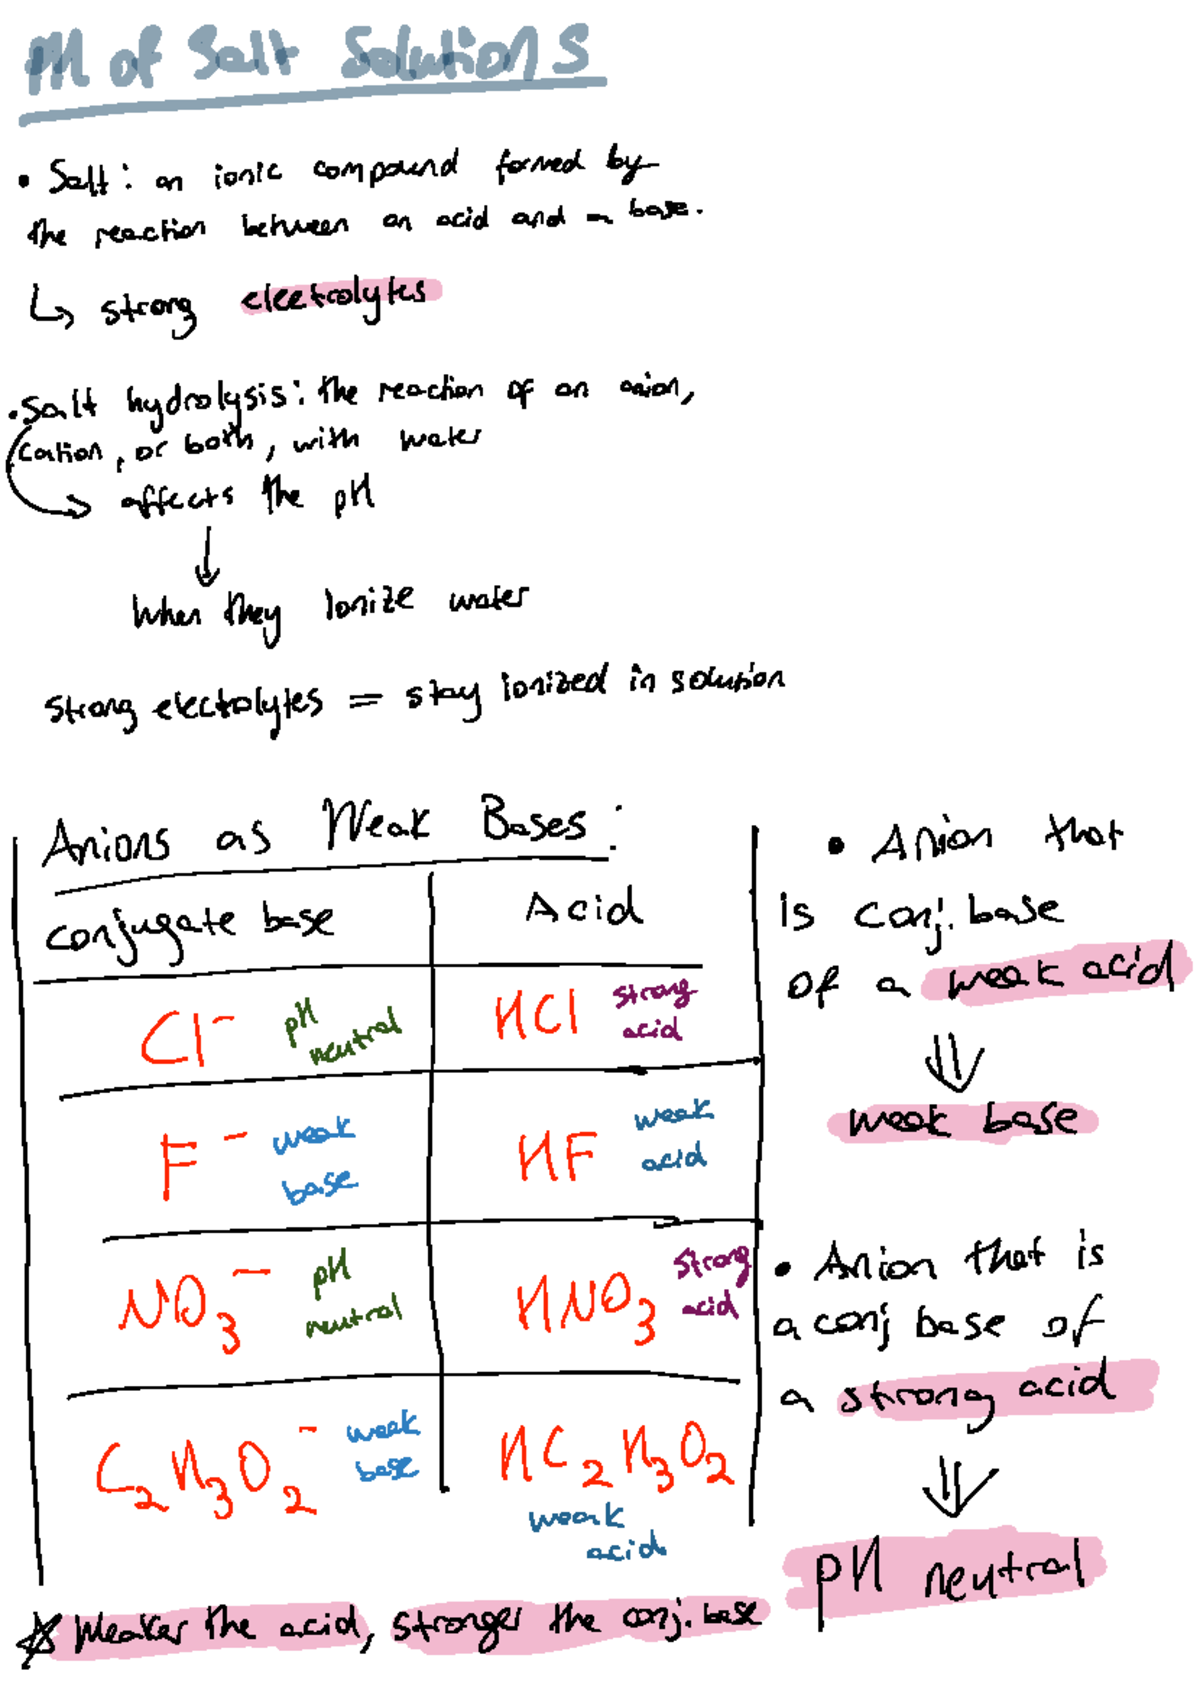 pH of Salt Solutions
• Salt: an ionic compound formed by
the reaction between an acid and a base.
↳ strong electrolytes
• Salt hydrolysis: the reaction of an anion,
cation, or both, with water
→ affects the pH
↓
When they Ionize water
Strong electrolytes = stay ionized in solution
Anions as Weak Bases:
conjugate base | Acid
Cl⁻ pH neutral | HCl strong acid
F⁻ weak base | HF weak acid
NO₃⁻ pH neutral | HNO₃ strong acid
C₂H₃O₂⁻ weak base | HC₂H₃O₂ weak acid
☆ Weaker the acid, stronger the conj. base
• Anion that
is conj. base
of a weak acid
⇓
weak base
• Anion that is
a conj base of
a strong acid
⇓
pH neutral